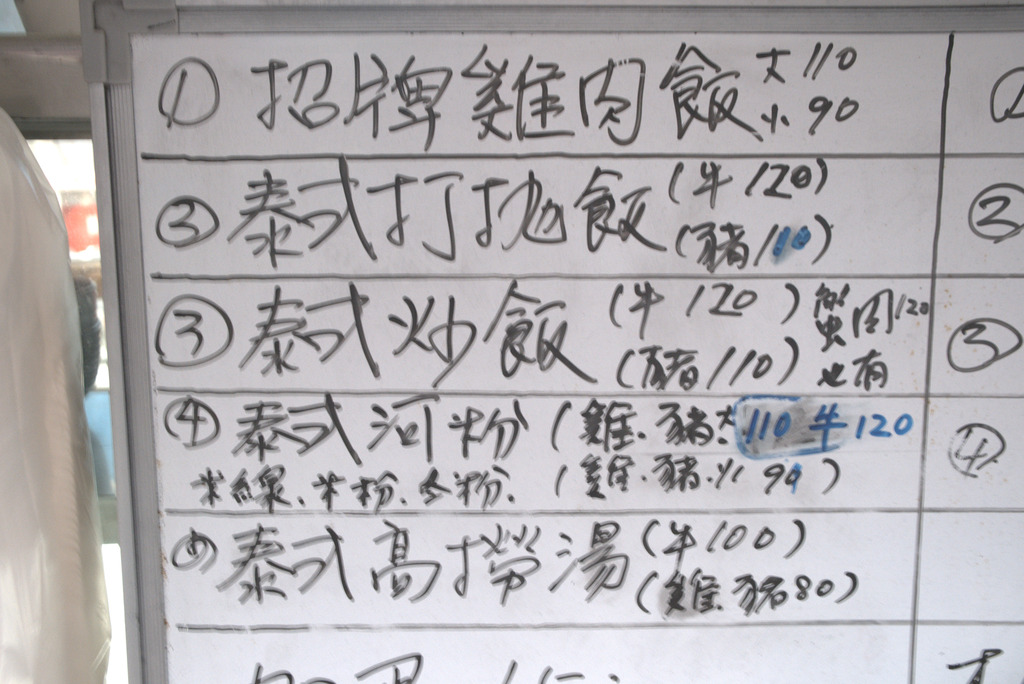 ① 招牌雞肉飯 大110
小90
② 泰式打抛飯 (牛 120)
(豬110)
③ 泰式炒飯 (牛 120) 蟹肉120
(豬110) 也有
④ 泰式河粉 (雞.豬大110 牛120
米線.米粉.冬粉. (雞.豬.小 90)
⑤ 泰式高撈湯 (牛100)
(雞.豬80)
②
③
④